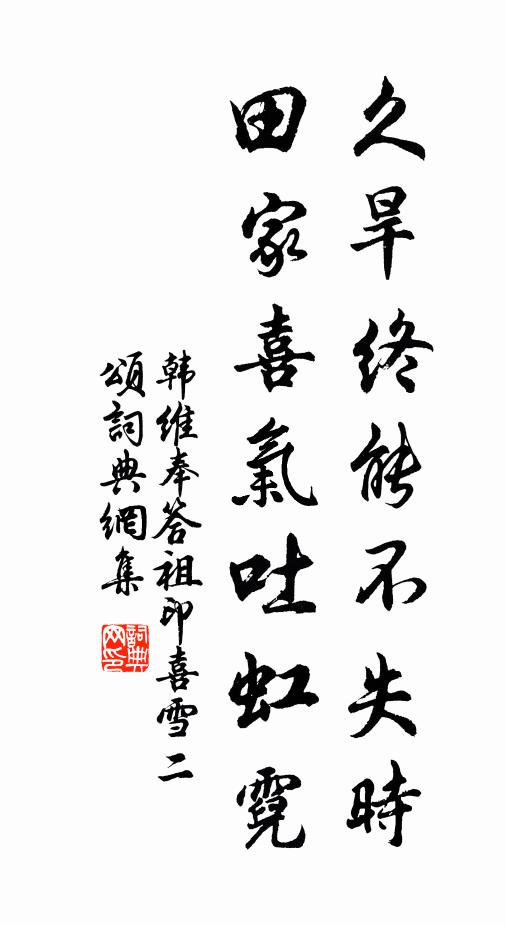 久旱終能不失時
田家喜氣吐虹霓
韩維奉答祖印喜雪二
頌詞典網集
詞典网印